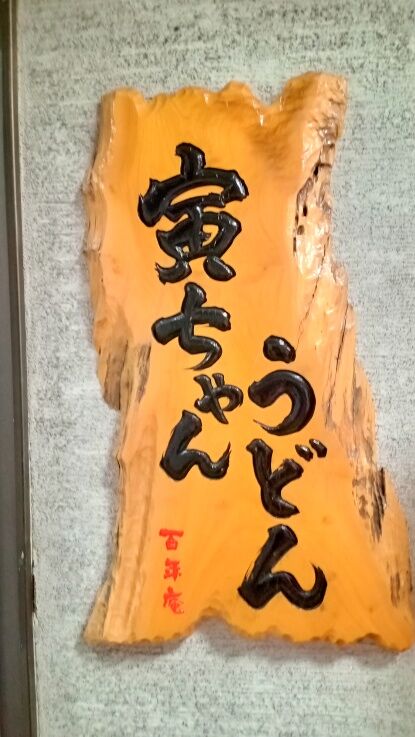 寅ちゃん
うどん
百年庵